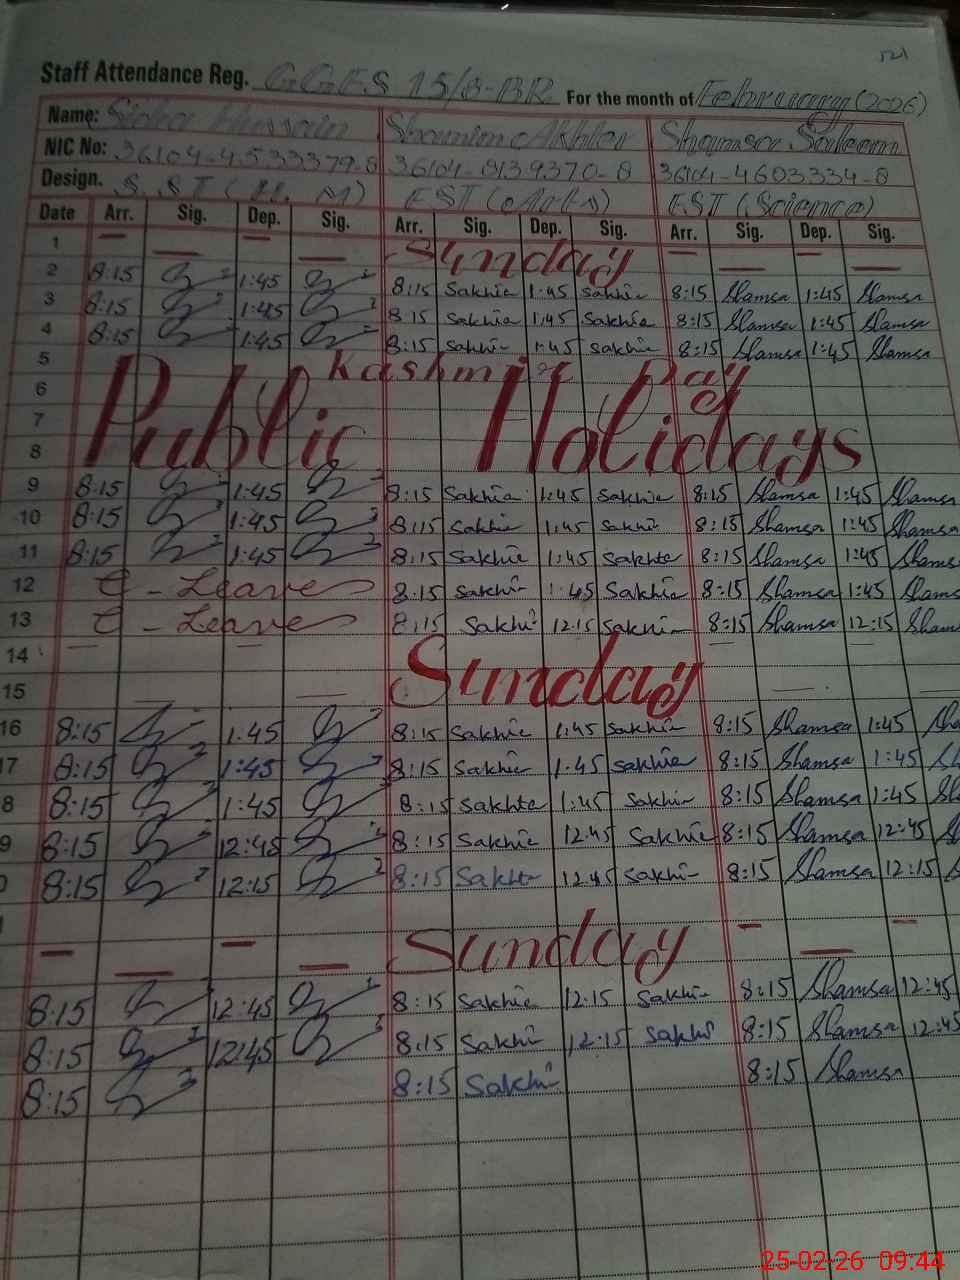 521
Staff Attendance Reg. GGES 15/8-BR For the month of February (2026)
Name: Hussain Shamim Akhter Shamsa Saleem
NIC No: 36104-4533379-8 36104-8139370-8 36104-4603334-8
Design. S.ST ( EST (Arts) EST (Science)
Date Arr. Sig. Dep. Sig. Arr. Sig. Dep. Sig. Arr. Sig. Dep. Sig.
1 — — — — Sunday — — — —
2 8:15 1:45 8:15 Sakhie 1:45 Sakhie 8:15 Shamsa 1:45 Shamsa
3 8:15 1:45 8:15 Sakhie 1:45 Sakhie 8:15 Shamsa 1:45 Shamsa
4 8:15 1:45 8:15 Sakhie 1:45 Sakhie 8:15 Shamsa 1:45 Shamsa
5 Kashmir Day
6
7 Public Holidays
8
9 8:15 1:45 8:15 Sakhie 1:45 Sakhie 8:15 Shamsa 1:45 Shamsa
10 8:15 1:45 8:15 Sakhie 1:45 Sakhi 8:15 Shamsa 1:45 Shamsa
11 8:15 1:45 8:15 Sakhie 1:45 Sakhte 8:15 Shamsa 1:45 Shams
12 C - Leave 8:15 Sakhi 1:45 Sakhie 8:15 Shamsa 1:45 Shams
13 C - Leave 8:15 Sakhi 12:15 Sakhi 8:15 Shamsa 12:15 Sham
14 — — — —
15 — Sunday — —
16 8:15 1:45 8:15 Sakhie 1:45 Sakhie 8:15 Shamsa 1:45 Sha
7 8:15 1:45 8:15 Sakhie 1:45 Sakhie 8:15 Shamsa 1:45 Sh
8 8:15 1:45 8:15 Sakhte 1:45 Sakhie 8:15 Shamsa 1:45 Sh
9 8:15 12:45 8:15 Sakhie 12:45 Sakhie 8:15 Shamsa 12:45
0 8:15 12:15 8:15 Sakhte 12:45 Sakhi 8:15 Shamsa 12:15
— — — — Sunday — — —
8:15 12:45 8:15 Sakhie 12:15 Sakhie 8:15 Shamsa 12:45
8:15 12:45 8:15 Sakhie 12:15 Sakhi 8:15 Shamsa 12:45
8:15 8:15 Sakhi 8:15 Shamsa
25-02-26 09.44